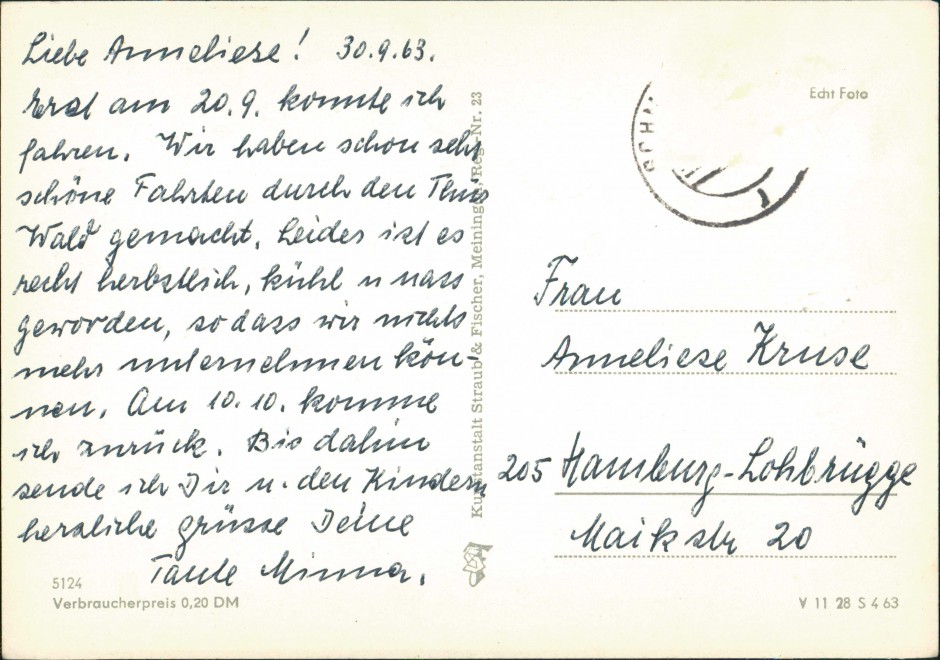 Liebe Anneliese! 30.9.63.
Erst am 20.9. konnte ich
fahren. Wir haben schon sehr
schöne Fahrten durch den Thür
Wald gemacht. Leider ist es
recht herbstlich, kühl u nass
geworden, so dass wir nichts
mehr unternehmen kön-
nen. Am 10.10. komme
ich zurück. Bis dahin
sende ich Dir u. den Kindern
herzliche grüsse Deine
Tante Minna.
5124
Verbraucherpreis 0,20 DM
Kunstanstalt Straub & Fischer, Meiningen, Reg.-Nr. 23
Echt Foto
Frau
Anneliese Kruse
205 Hamburg-Lohbrügge
Maikstr 20
V 11 28 S 4 63